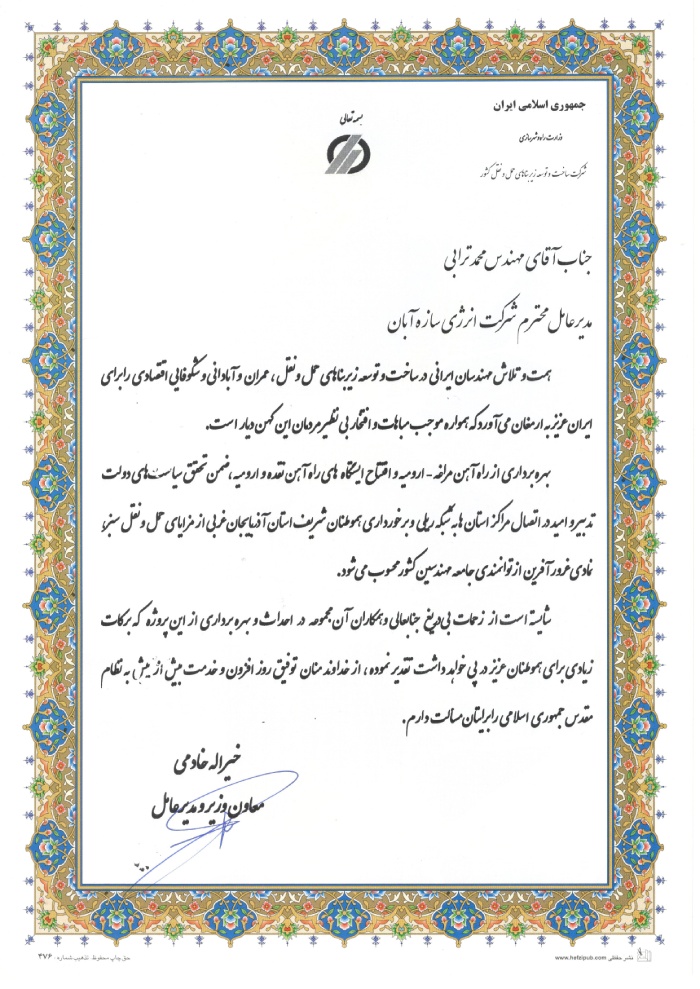 جمهوری اسلامی ایران
وزارت راه و شهرسازی
شرکت ساخت و توسعه زیربناهای حمل و نقل کشور
بسمه تعالی
جناب آقای مهندس محمد ترابی
مدیر عامل محترم شرکت انرژی سازه آبان
همت و تلاش مهندسان ایرانی در ساخت و توسعه زیربناهای حمل و نقل ، عمران و آبادانی و شکوفایی اقتصادی را برای
ایران عزیز به ارمغان می‌آورد که همواره موجب مباهات و افتخار بی نظیر مردمان این کهن دیار است.
بهره برداری از راه آهن مراغه - ارومیه و افتتاح ایستگاه های راه آهن نقده و ارومیه، ضمن تحقق سیاست‌های دولت
تدبیر و امید در اتصال مراکز استان ها به شبکه ریلی و برخورداری هموطنان شریف استان آذربایجان غربی از مزایای حمل و نقل سبز،
نمادی غرور آفرین از توانمندی جامعه مهندسین کشور محسوب می شود.
شایسته است از زحمات بی دریغ جنابعالی و همکاران آن مجموعه در احداث و بهره برداری از این پروژه که برکات
زیادی برای هموطنان عزیز در پی خواهد داشت تقدیر نموده ، از خداوند منان توفیق روز افزون و خدمت بیش از پیش به نظام
مقدس جمهوری اسلامی را برایتان مسألت دارم.
خیراله خادمی
معاون وزیر و مدیرعامل
حق چاپ محفوظ. تذهیب شماره ۴۷۶
نشر حافظی www.hafzipub.com